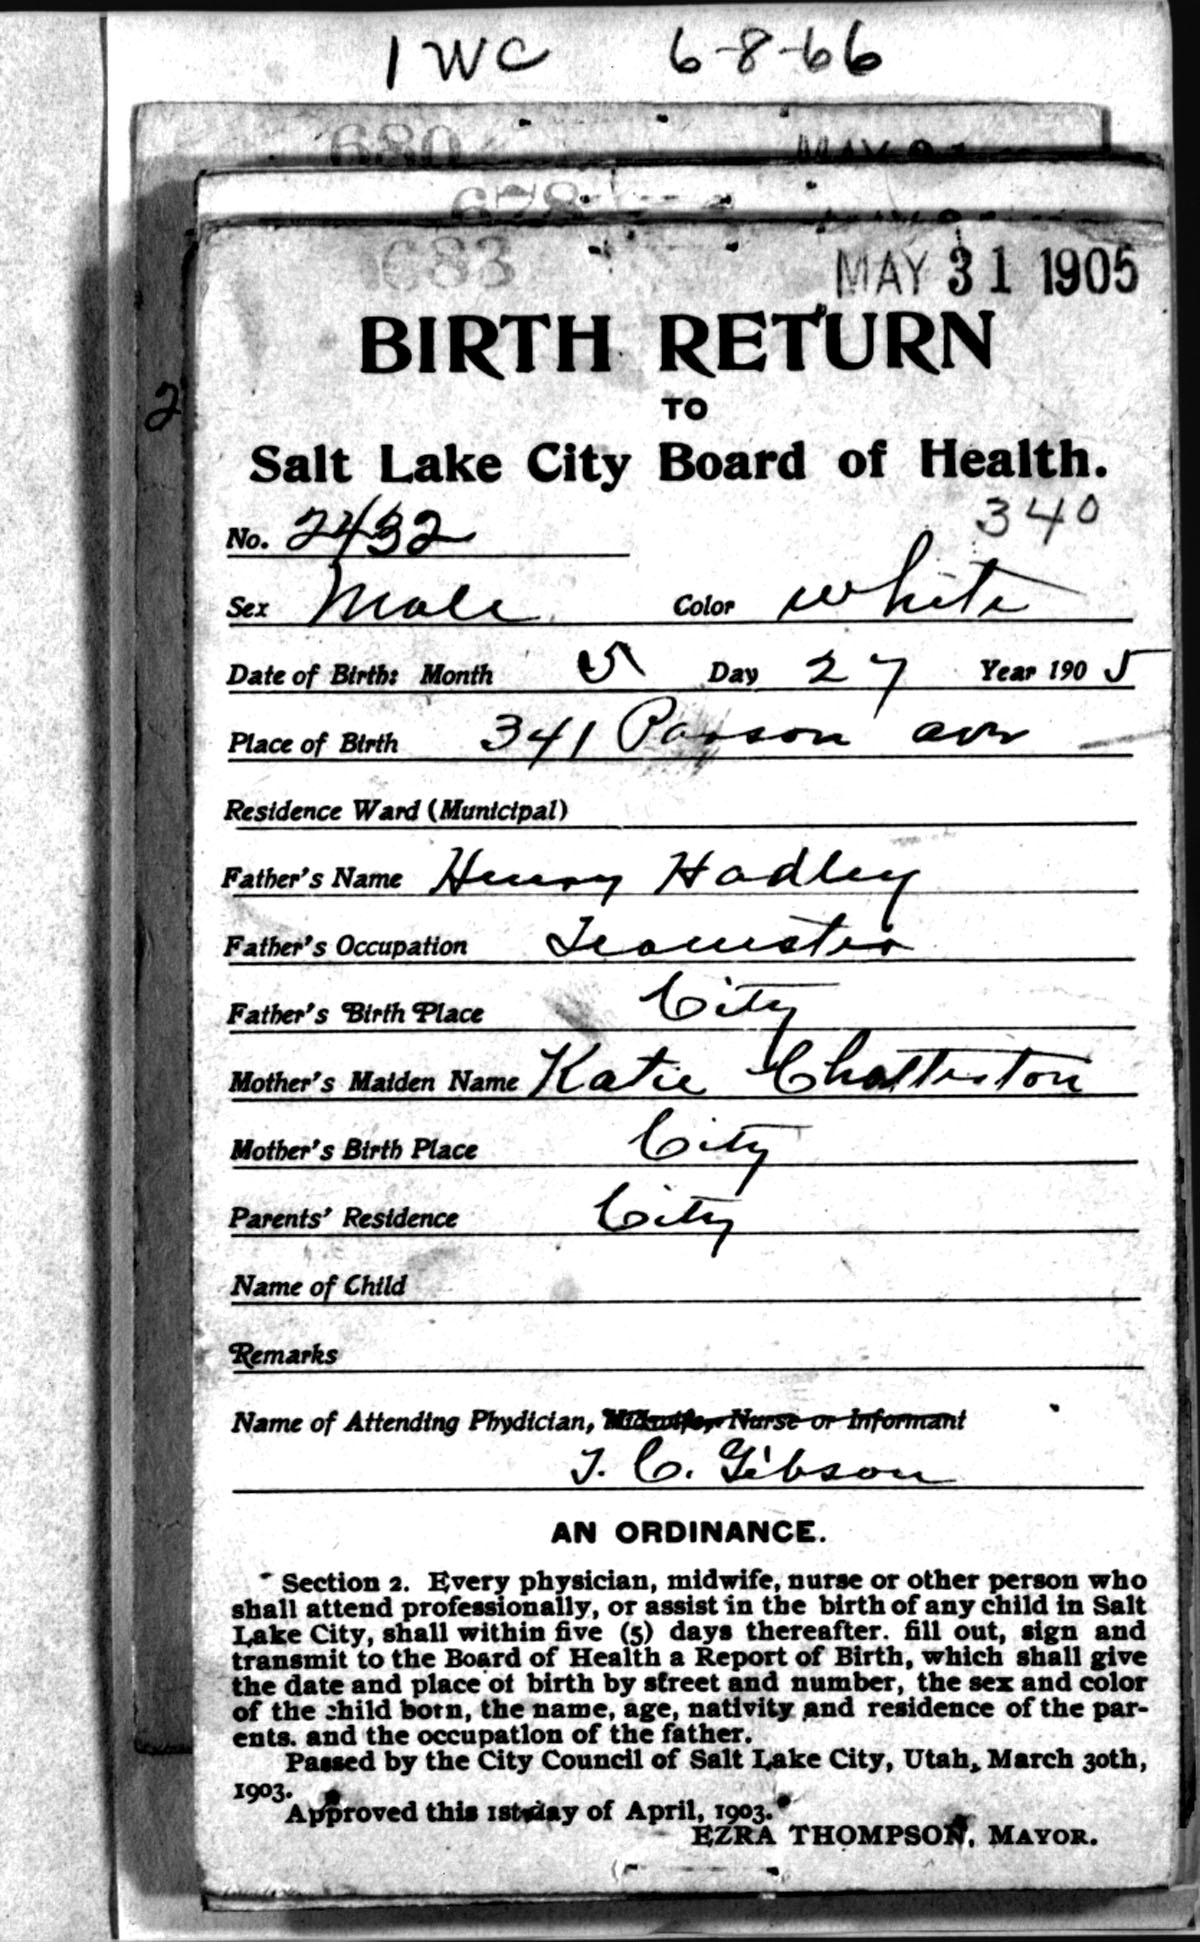 1 WC 6-8-66
680
678
683 MAY 31 1905
BIRTH RETURN
TO
Salt Lake City Board of Health.
340
No. 2432
2
Sex Male Color White
Date of Birth: Month 5 Day 27 Year 1905
Place of Birth 341 Parson ave
Residence Ward (Municipal)
Father's Name Henry Hadley
Father's Occupation Teamster
Father's Birth Place City
Mother's Maiden Name Katie Chatterton
Mother's Birth Place City
Parents' Residence City
Name of Child
Remarks
Name of Attending Phydician, Midwife, Nurse or Informant
T. C. Gibson
AN ORDINANCE.
Section 2. Every physician, midwife, nurse or other person who
shall attend professionally, or assist in the birth of any child in Salt
Lake City, shall within five (5) days thereafter. fill out, sign and
transmit to the Board of Health a Report of Birth, which shall give
the date and place of birth by street and number, the sex and color
of the child born, the name, age, nativity and residence of the par-
ents. and the occupation of the father.
Passed by the City Council of Salt Lake City, Utah, March 30th,
1903.
Approved this 1st day of April, 1903.
EZRA THOMPSON, MAYOR.